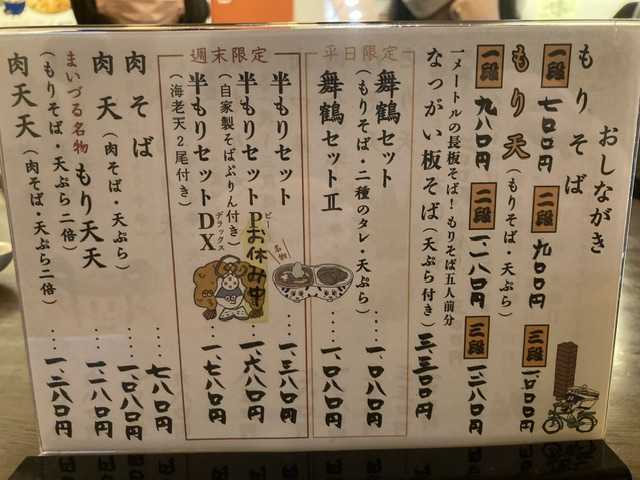 おしながき
もりそば
一段 七〇〇円 二段 九〇〇円 三段 一、一〇〇円
もり天(もりそば・天ぷら)
一段 九八〇円 二段 一、一八〇円 三段 一、三八〇円
一メートルの長板そば!もりそば五人前分
なっがい板そば(天ぷら付き) 三、三〇〇円
平日限定
舞鶴セット
(もりそば・二種のタレ・天ぷら)‥‥一、〇八〇円
舞鶴セットⅡ
‥‥一、〇八〇円
名物
週末限定
半もりセット ‥‥一、三八〇円
半もりセットP ビー お休み中
(自家製そばぷりん付き)‥‥一、六八〇円
半もりセットDX デラックス
(海老天2尾付き) ‥‥一、七八〇円
肉そば ‥‥七八〇円
肉天(肉そば・天ぷら)‥‥一、〇八〇円
まいづる名物 もり天天
(もりそば・天ぷら二倍)‥‥一、一八〇円
肉天天(肉そば・天ぷら二倍)‥‥一、二八〇円